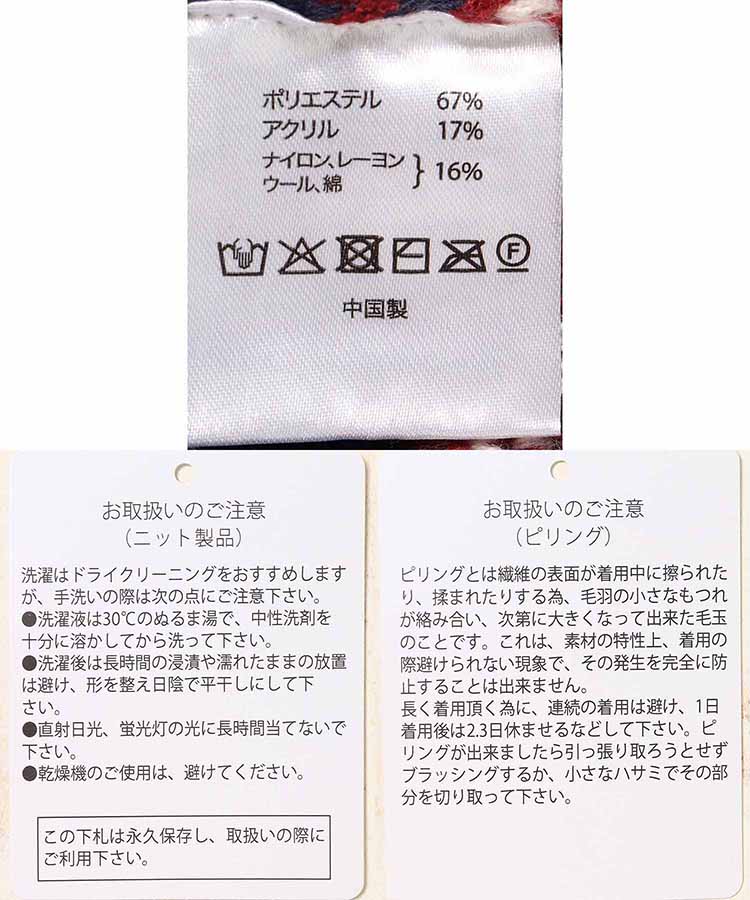 ポリエステル 67%
アクリル 17%
ナイロン、レーヨン
ウール、綿 } 16%
F
中国製
お取扱いのご注意
（ニット製品）
洗濯はドライクリーニングをおすすめします
が、手洗いの際は次の点にご注意下さい。
●洗濯液は30℃のぬるま湯で、中性洗剤を
十分に溶かしてから洗って下さい。
●洗濯後は長時間の浸漬や濡れたままの放置
は避け、形を整え日陰で平干しにして下
さい。
●直射日光、蛍光灯の光に長時間当てないで
下さい。
●乾燥機のご使用は、避けてください。
この下札は永久保存し、取扱いの際に
ご利用下さい。
お取扱いのご注意
（ピリング）
ピリングとは繊維の表面が着用中に擦られた
り、揉まれたりする為、毛羽の小さなもつれ
が絡み合い、次第に大きくなって出来た毛玉
のことです。これは、素材の特性上、着用の
際避けられない現象で、その発生を完全に防
止することは出来ません。
長く着用頂く為に、連続の着用は避け、1日
着用後は2.3日休ませるなどして下さい。ピ
リングが出来ましたら引っ張り取ろうとせず
ブラッシングするか、小さなハサミでその部
分を切り取って下さい。